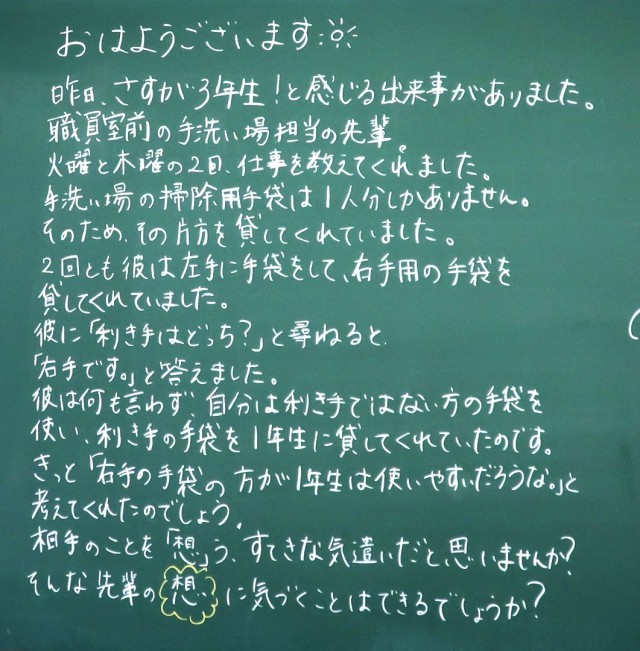 おはようございます
昨日、さすが3年生!と感じる出来事がありました。
職員室前の手洗い場担当の先輩。
火曜と木曜の2日、仕事を教えてくれました。
手洗い場の掃除用手袋は1人分しかありません。
そのため、その片方を貸してくれていました。
2回とも彼は左手に手袋をして、右手用の手袋を
貸してくれていました。
彼に「利き手はどっち?」と尋ねると、
「右手です。」と答えました。
彼は何も言わず、自分は利き手ではない方の手袋を
使い、利き手の手袋を1年生に貸してくれていたのです。
きっと「右手の手袋の方が1年生は使いやすいだろうな。」と
考えてくれたのでしょう。
相手のことを「想」う、すてきな気遣いだと思いませんか?
そんな先輩の想いに気づくことはできるでしょうか?